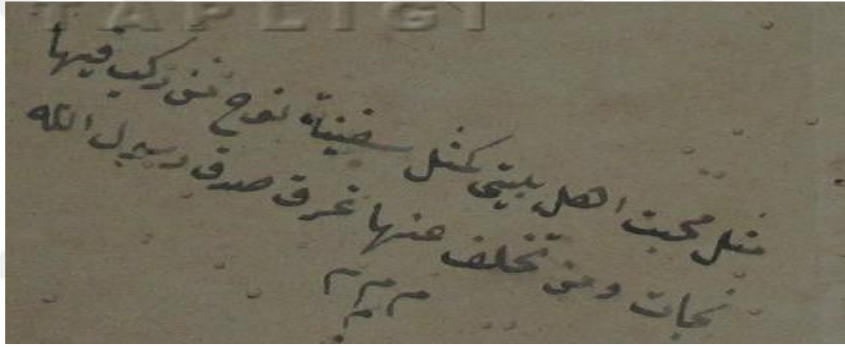 TAPLIGI
مثل محبت اهل بيتى كمثل سفينة نوح من ركب فيها
نجات ومن تخلف عنها غرق صدق رسول الله